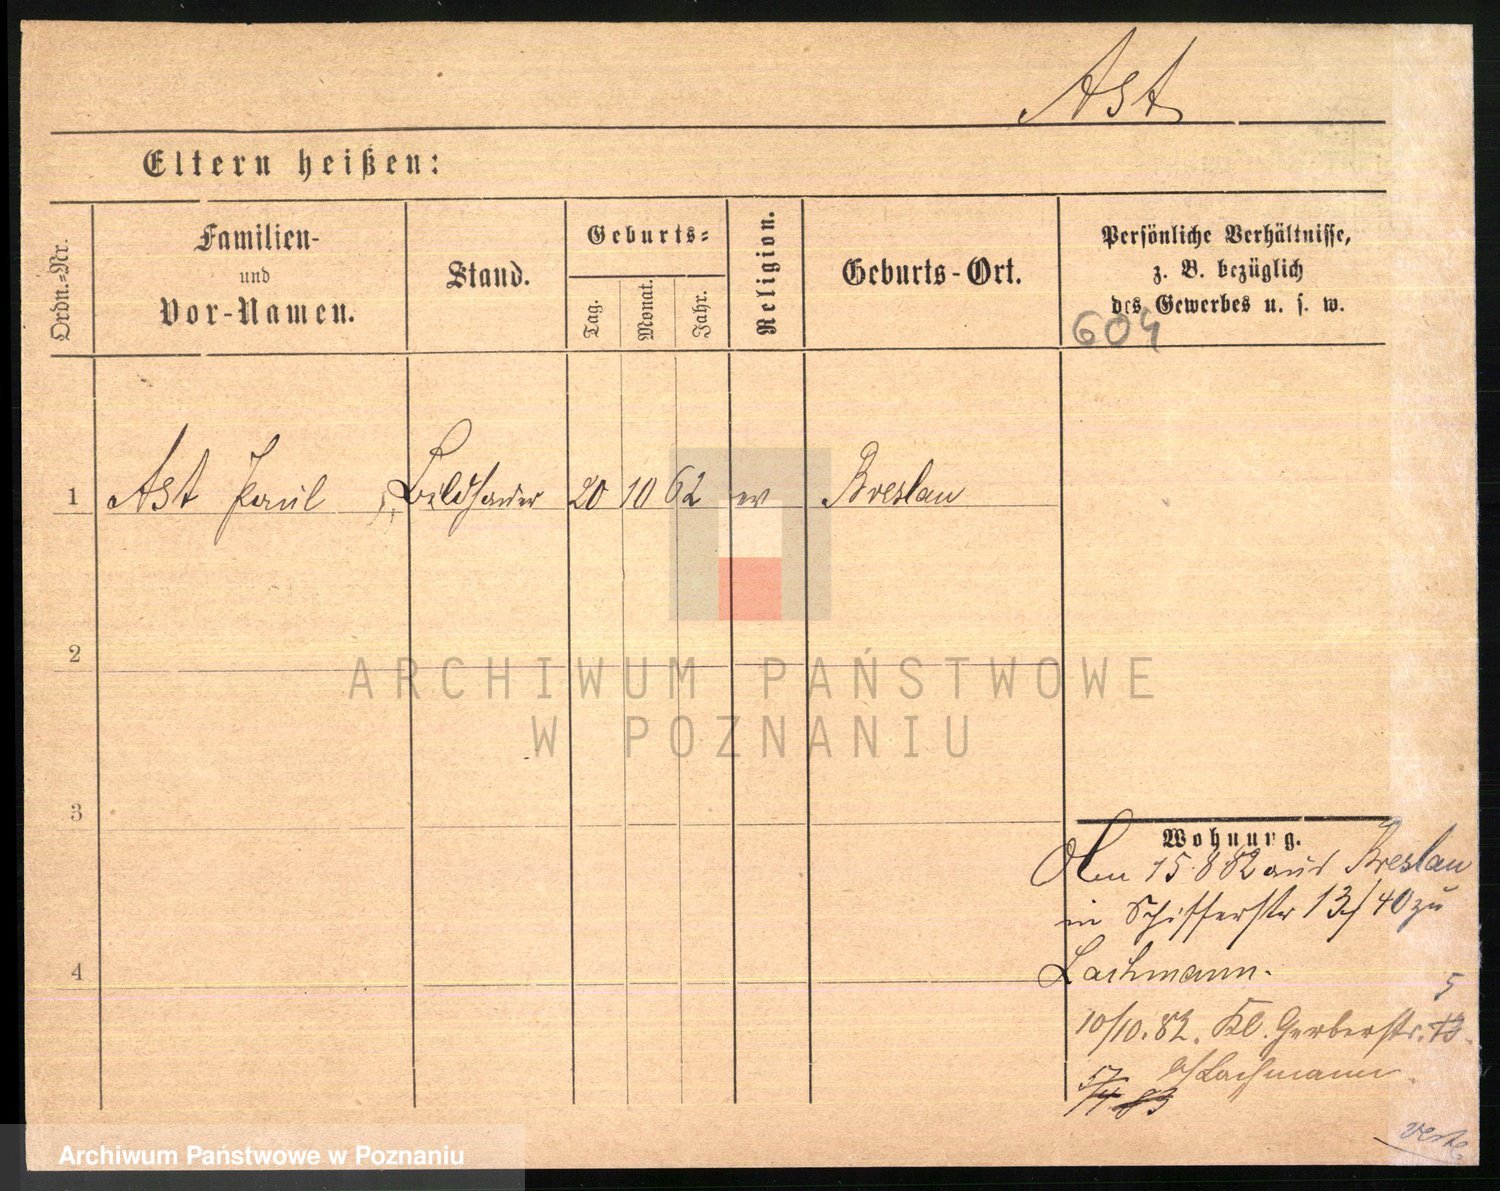 Ast
Eltern heißen:
Ordn.-Nr.
Familien-
und
Vor-Namen.
Stand.
Geburts-
Tag.
Monat.
Jahr.
Religion.
Geburts-Ort.
Persönliche Verhältnisse,
z. B. bezüglich
des Gewerbes u. s. w.
604
1 Ast Paul Bildhauer 20 10 62 ev Breslau
2
ARCHIWUM PAŃSTWOWE
W POZNANIU
3
Wohnung.
Am 15 8 82 aus Breslau
in Schifferstr 13/40 zu
4
Lachmann.
5
10/10. 82. Kl. Gerberstr. 13.
b/Lachmann.
83
Archiwum Państwowe w Poznaniu